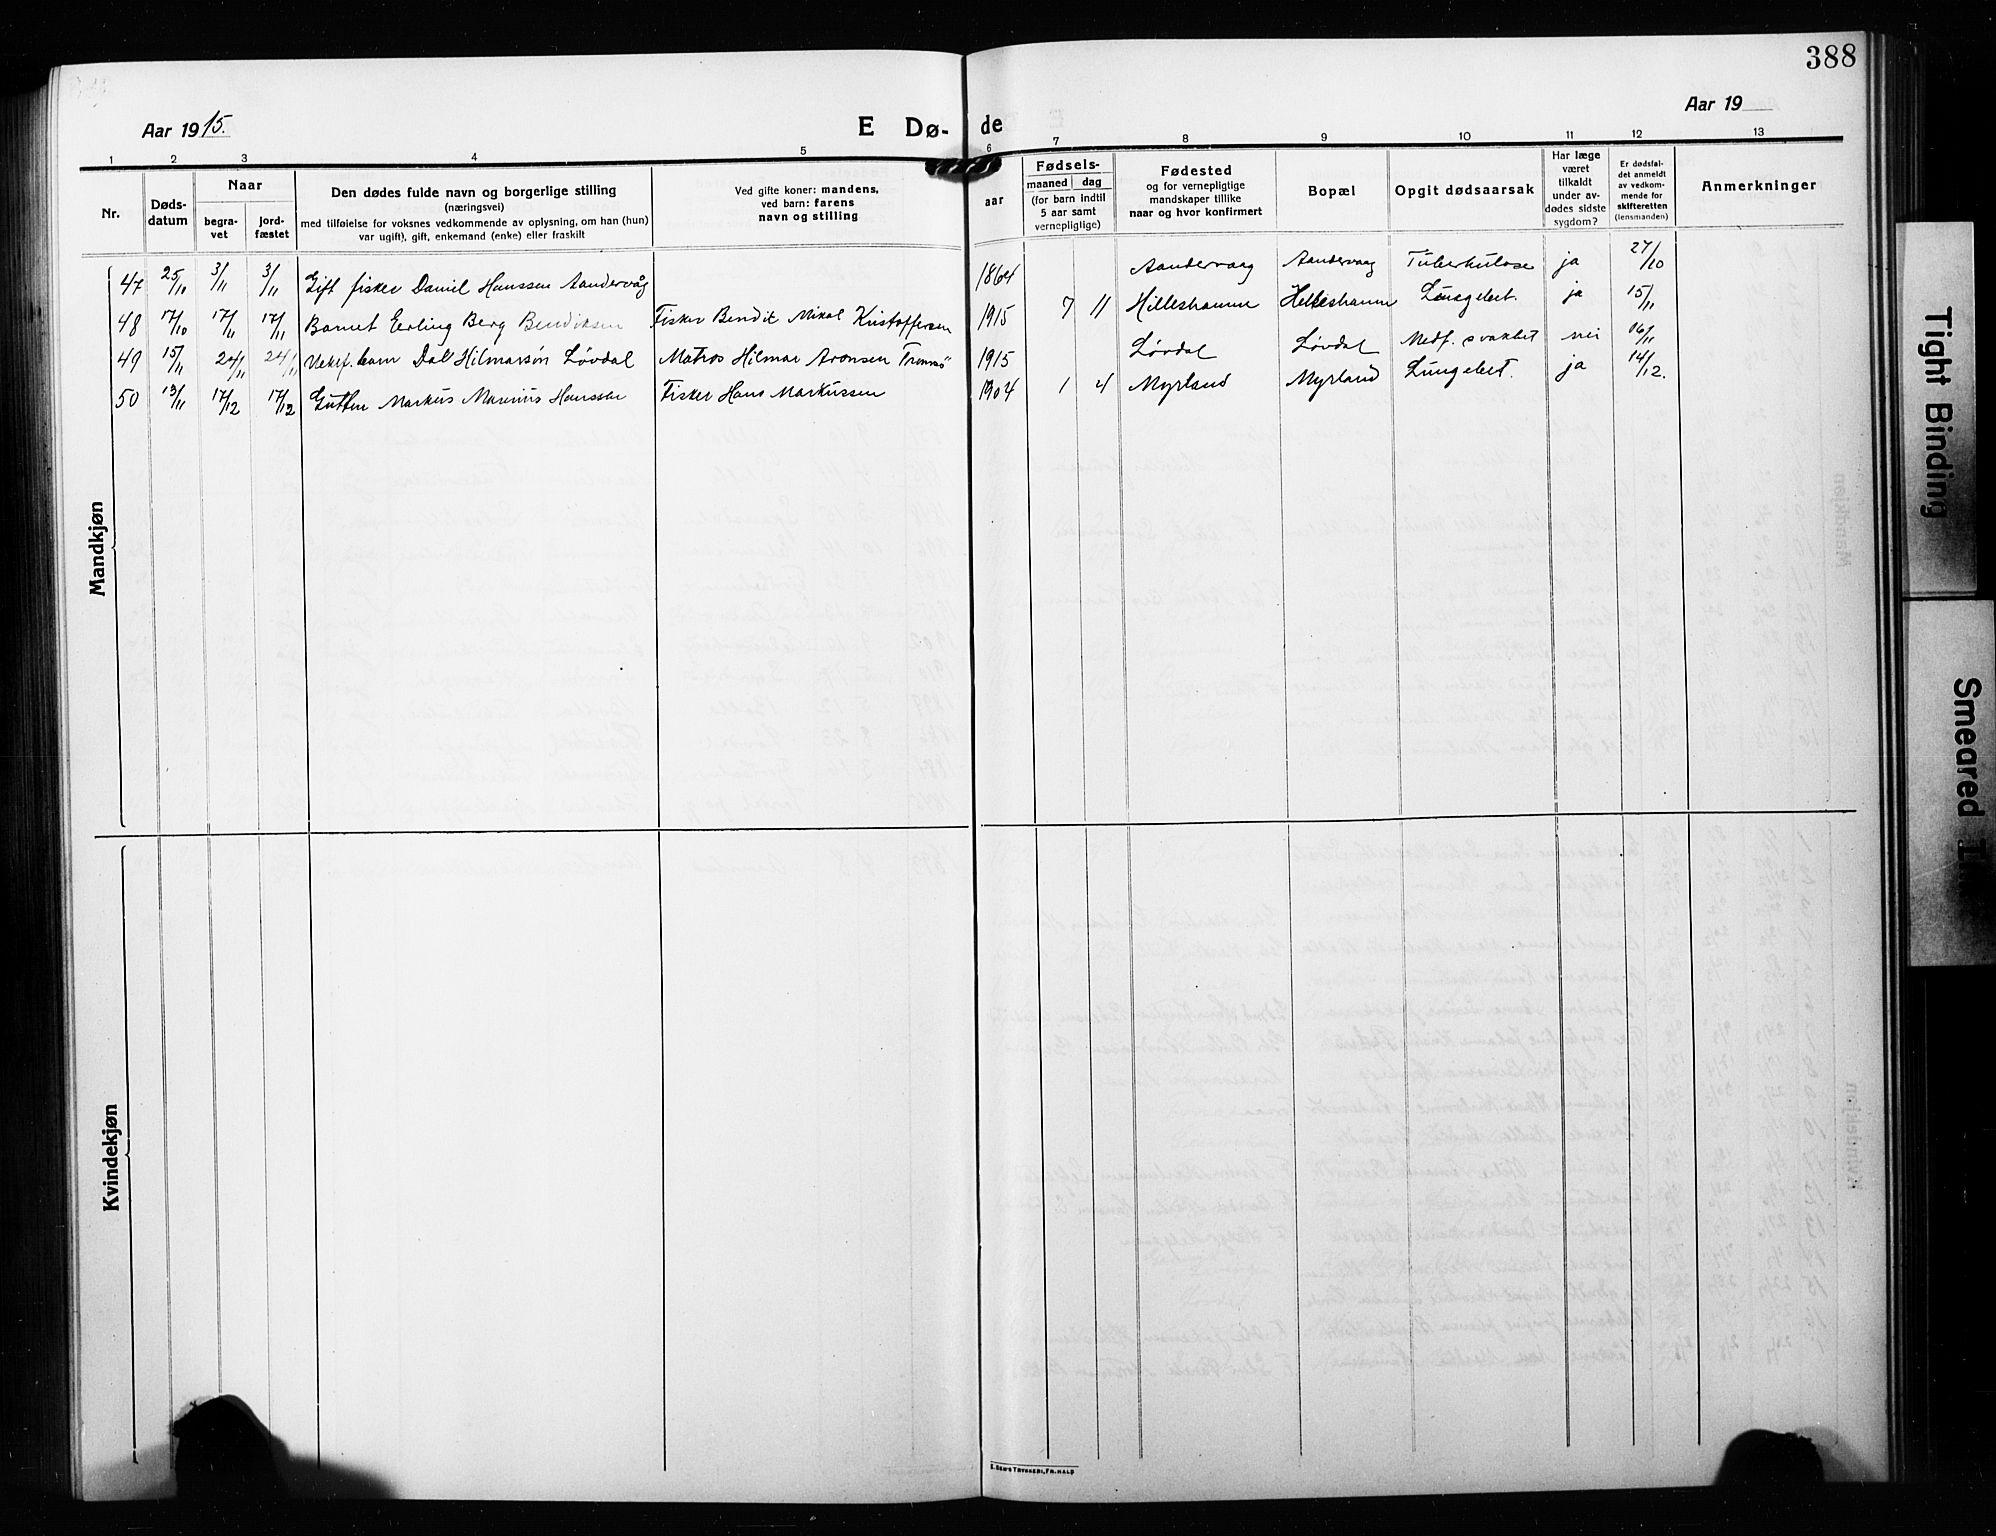 388
Aar 1915.
E Dø-
de
Aar 19
1 2 3 4 5 6 7 8 9 10 11 12 13
Nr.
Døds-
datum
Naar
begra-
vet
jord-
fæstet
Den dødes fulde navn og borgerlige stilling
(næringsvei)
med tilføielse for voksnes vedkommende av oplysning, om han (hun)
var ugift), gift, enkemand (enke) eller fraskilt
Ved gifte koner: mandens,
ved barn: farens
navn og stilling
Fødsels-
aar
maaned dag
(for barn indtil
5 aar samt
vernepligtige)
Fødested
og for vernepligtige
mandskaper tillike
naar og hvor konfirmert
Bopæl
Opgit dødsaarsak
Har læge
været
tilkaldt
under av-
dødes sidste
sygdom?
Er dødsfal-
det anmeldt
av vedkom-
mende for
skifteretten
(lensmanden)
Anmerkninger
Mandkjøn
47 25/10 3/11 3/11 Gift fisker Daniel Hanssen Aandervåg 1864 Aandervaag Aandervaag Tuberkulose ja 27/10
48 17/10 17/11 17/11 Barnet Erling Berg Bendiksen Fisker Bendik Mikal Kristoffersen 1915 7 11 Hilleshamn Hilleshamn Lungebet. ja 15/11
49 15/11 24/11 24/11 barn Dal Hilmarsøn Løvdal Matros Hilmar Aronsen Tromsö 1915 Løvdal Løvdal Medf. svakhet nei 16/11
50 13/11 17/12 17/12 Gutten Markus Marinius Hanssen Fisker Hans Markussen 1904 1 4 Myrland Myrland Lungebet. ja 14/12.
Kvindekjøn
Tight Binding
Smeared